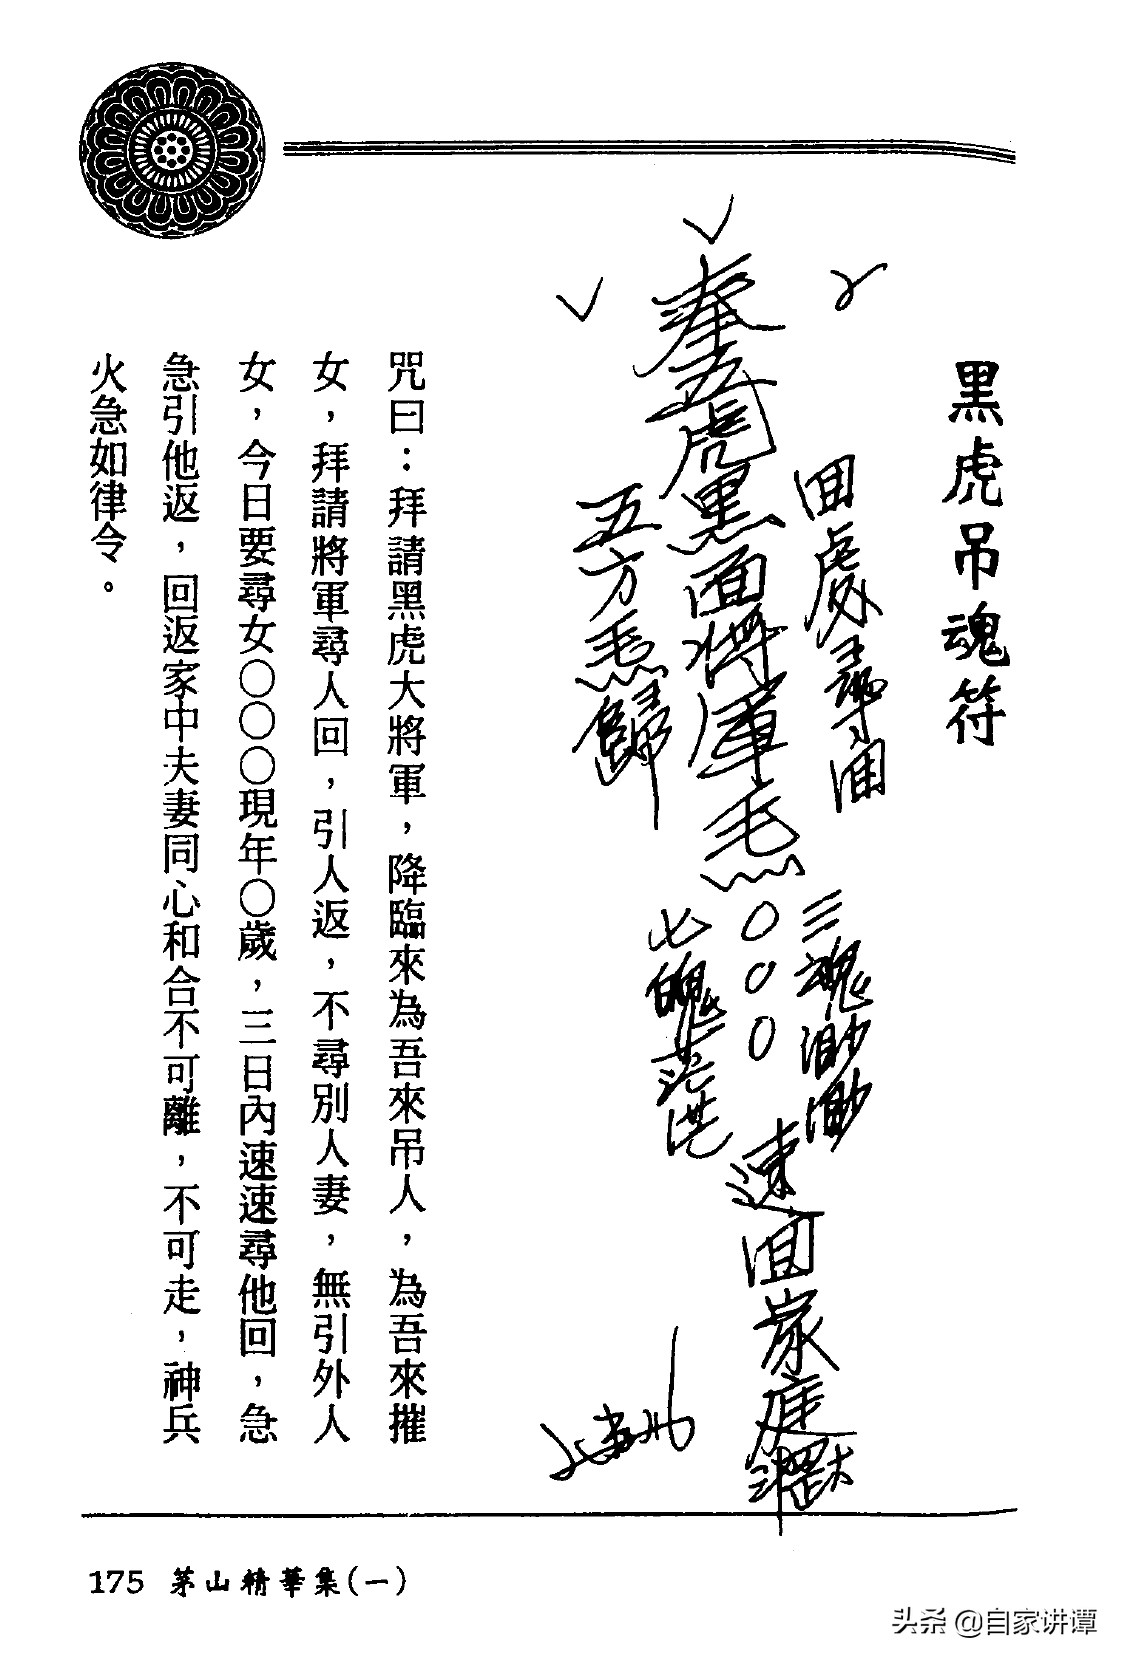 黑虎吊魂符
奉五虎黑面將軍
五方
三魂渺渺
七魄茫茫
速回家庭
咒曰：拜請黑虎大將軍，降臨來為吾來吊人，為吾來摧
女，拜請將軍尋人回，引人返，不尋別人妻，無引外人
女，今日要尋女〇〇〇現年〇歲，三日內速速尋他回，急
急引他返，回返家中夫妻同心和合不可離，不可走，神兵
火急如律令。
175 茅山精華集(一)
头条 @自家讲谭